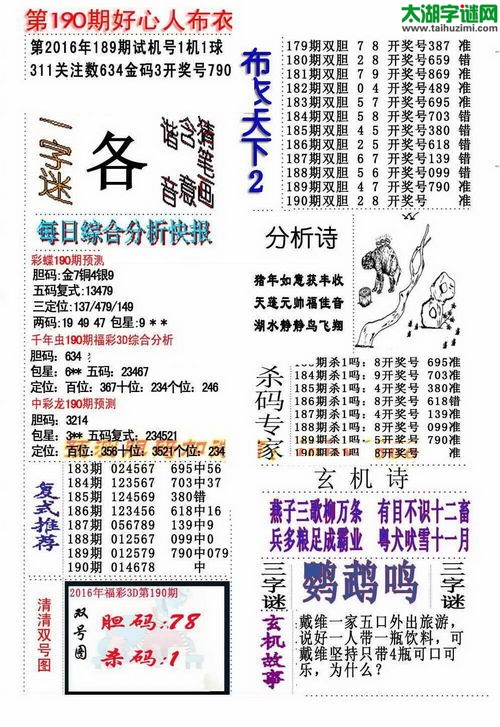 第190期好心人布衣
太湖字谜网
www.taihuzimi.com
第2016年189期试机号1机1球
311关注数634金码3开奖号790
一字迷
各
猜笔画
含意
猜音
布衣天下2
179期双胆 7 8 开奖号387 准
180期双胆 2 8 开奖号659 错
181期双胆 7 8 开奖号869 准
182期双胆 0 4 开奖号489 准
183期双胆 5 7 开奖号695 准
184期双胆 5 8 开奖号703 错
185期双胆 4 5 开奖号380 错
186期双胆 2 5 开奖号618 错
187期双胆 6 7 开奖号139 错
188期双胆 5 6 开奖号099 错
189期双胆 4 7 开奖号790 准
190期双胆 2 8 开奖号
每日综合分析快报
彩蝶190期预测
胆码:金7铜4银9
五码复式:13479
三定位:137/479/149
两码:19 49 47 包星:9 * *
千年虫190期福彩3D综合分析
胆码: 634
包星: 6** 五码: 23467
定位: 百位: 367十位: 234个位: 246
中彩龙190期预测
胆码: 3214
包星: 3** 五码: 234521
定位: 百位: 356十位: 3521个位: 234
分析诗
猪年如意获丰收
天莲元帅福佳音
湖水静静鸟飞翔
杀码专家
183期杀1吗: 8开奖号 695准
184期杀1吗: 9开奖号 703准
185期杀1吗: 4开奖号 380准
186期杀1吗: 9开奖号 618准
187期杀1吗: 6开奖号 139准
188期杀1吗: 5开奖号 099准
189期杀1吗: 8开奖号 790准
190期杀1吗: 8开奖号
复式推荐
183期 024567 695中56
184期 123567 703中37
185期 245679 380错
186期 123456 618中16
187期 056789 139中9
188期 023489 099中09
189期 012579 790中079
190期 014678 中
玄机诗
燕子三歌柳万条 有目不识十二畜
兵多粮足成霸业 粤犬吠雪十一月
清清双号图
2016年福彩3D第190期
双号图
胆码:78
杀码:1
三字谜
鹦鹉鸣
三字谜
玄机故事
戴维一家五口外出旅游,
说好一人带一瓶饮料,可
戴维坚持只带4瓶可口可
乐,为什么?